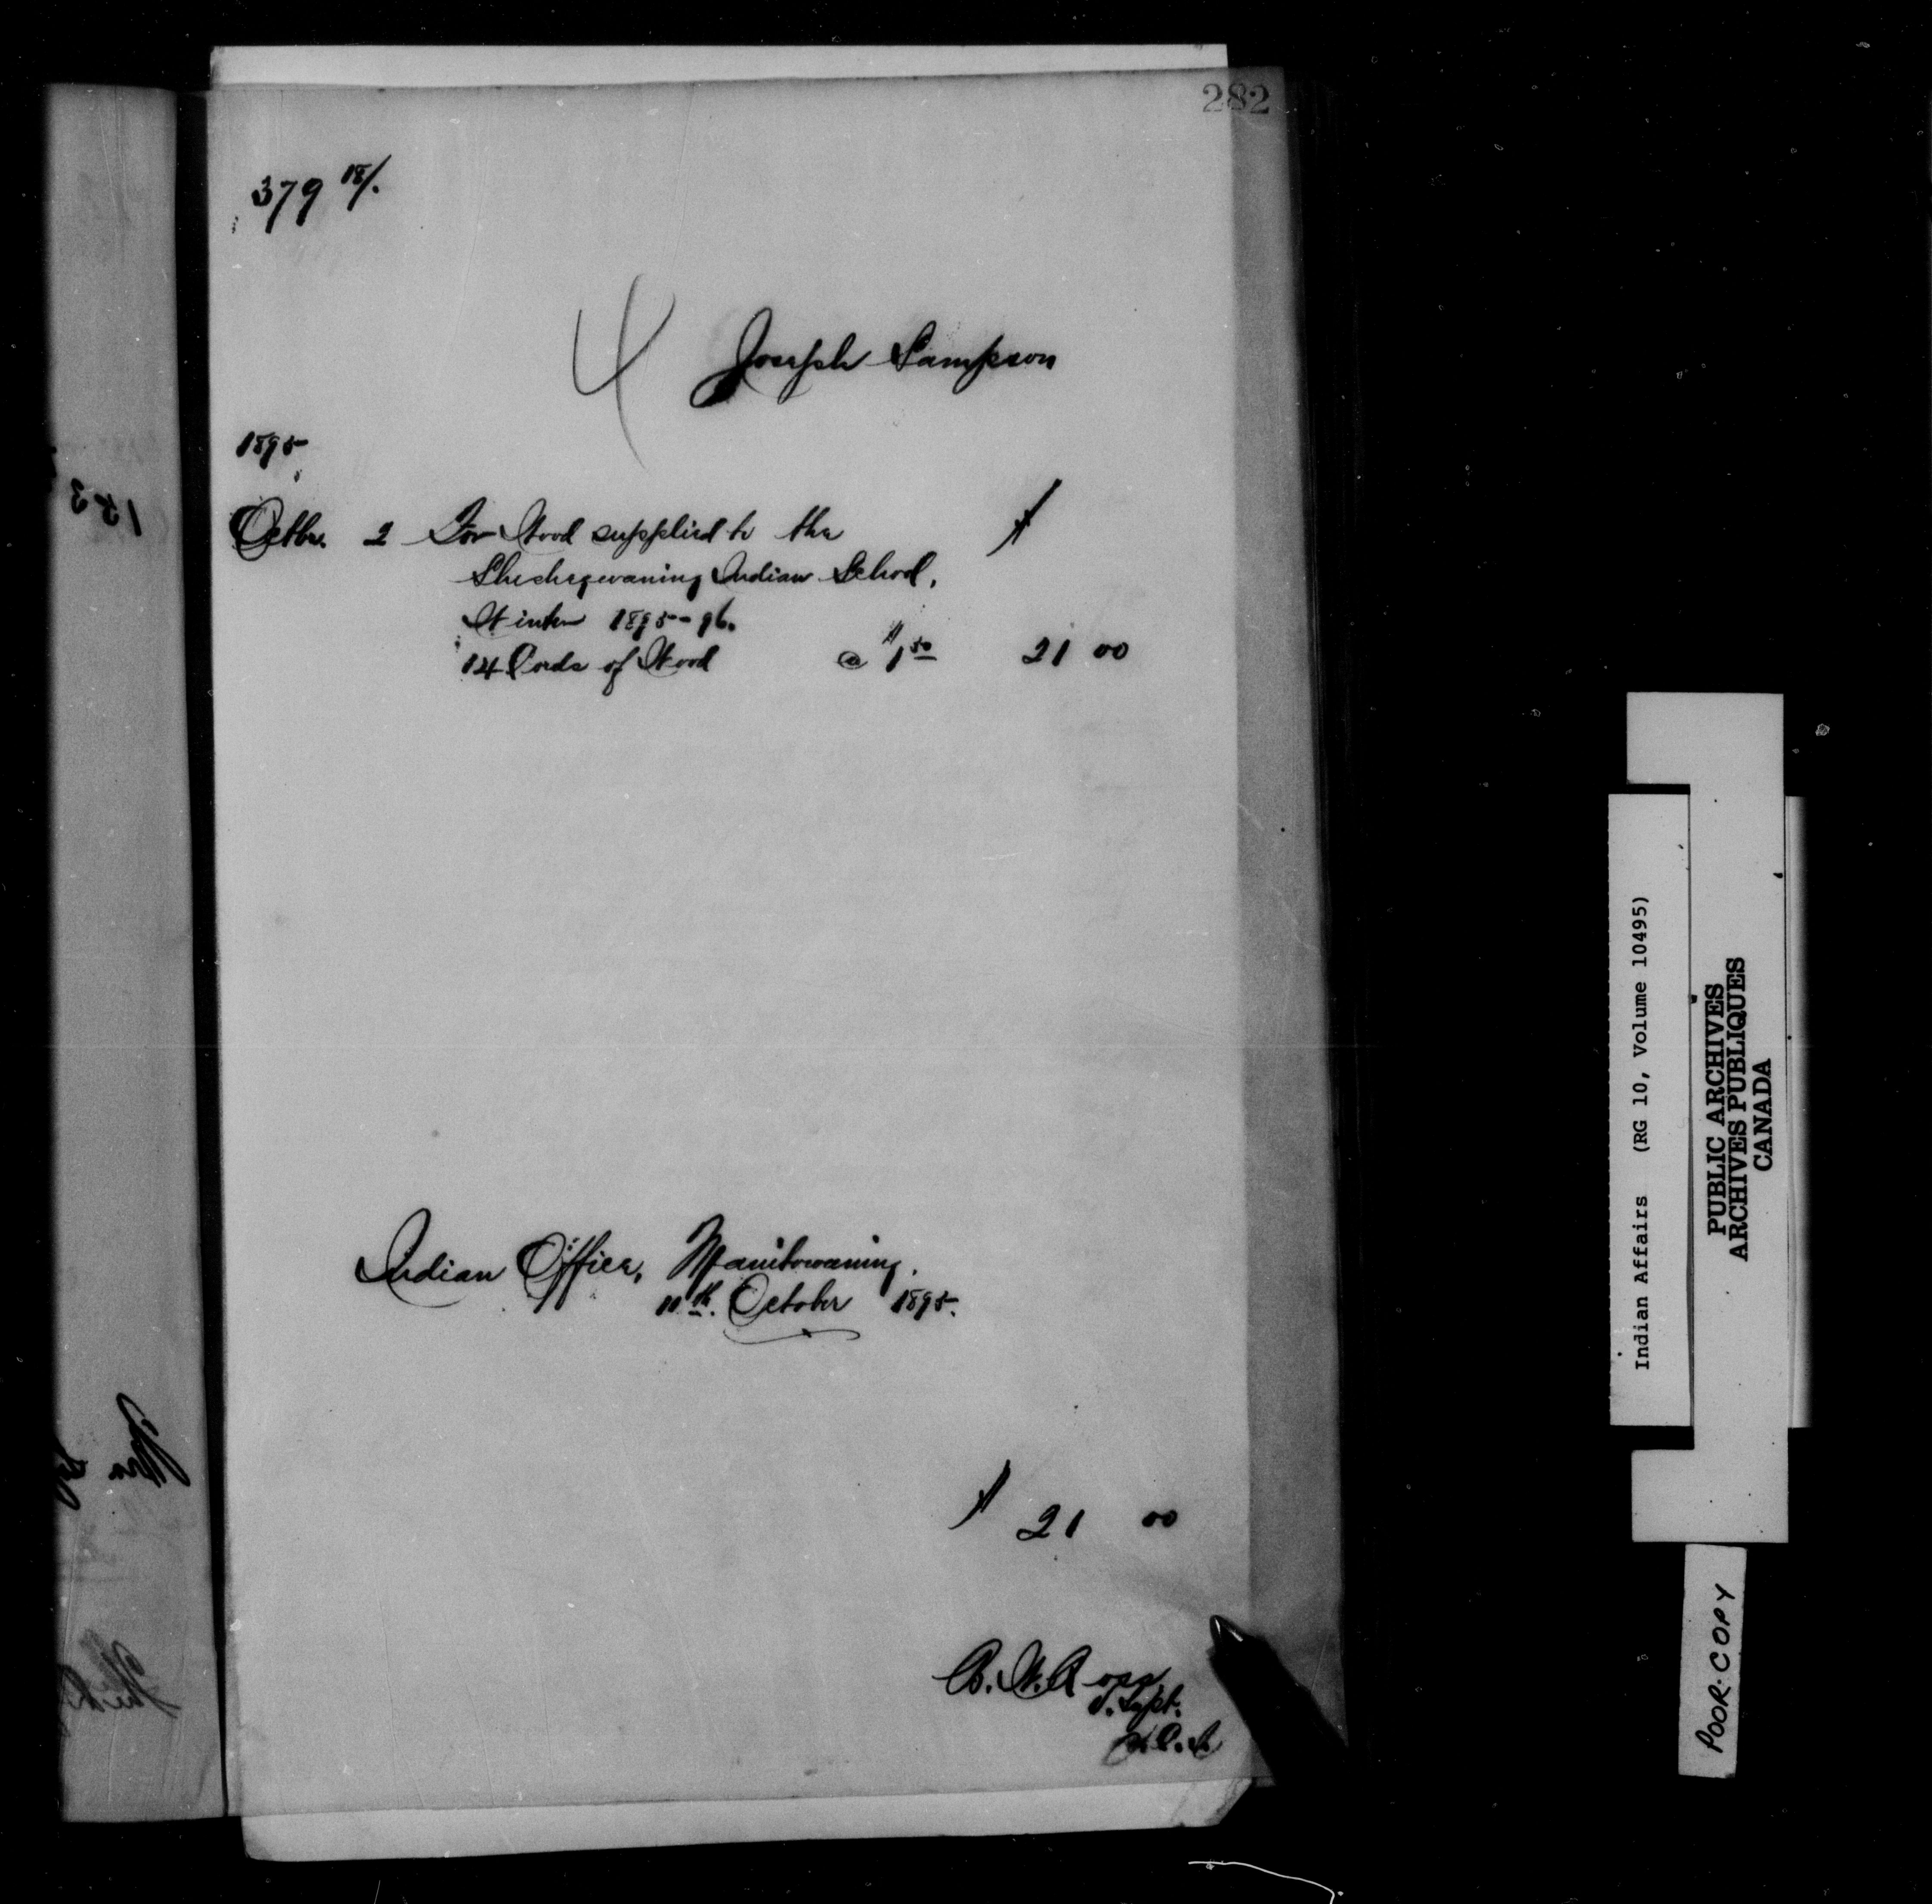 282
379 18/.
4 Joseph Sampson
1895
Octbr. 2 For Wood supplied to the $
Sheshegwaning Indian School,
Winter 1895-96.
14 Cords of Wood @ $1 50 21 00
Indian Office, Manitowaning.
11th. October 1895.
$ 21 00
B. W. Ross
I. Supt.
153
Indian Affairs (RG 10, Volume 10495)
PUBLIC ARCHIVES
ARCHIVES PUBLIQUES
CANADA
POOR COPY